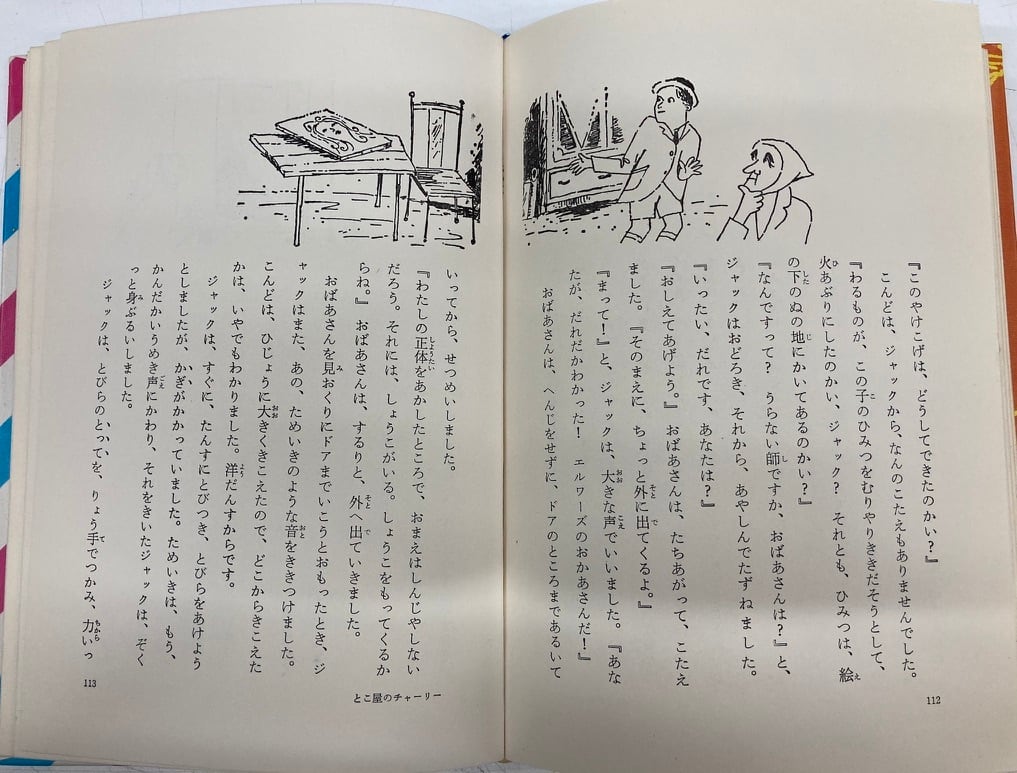 『このやけこげは、どうしてできたのかい？』
こんどは、ジャックから、なんのこたえもありませんでした。
『わるものが、この子のひみつをむりやりききだそうとして、
火あぶりにしたのかい、ジャック？　それとも、ひみつは、絵
の下のぬの地にかいてあるのかい？』
『なんですって？　うらない師ですか、おばあさんは？』と、
ジャックはおどろき、それから、あやしんでたずねました。
『いったい、だれです、あなたは？』
『おしえてあげよう。』おばあさんは、たちあがって、こたえ
ました。『そのまえに、ちょっと外に出てくるよ。』
『まって！』と、ジャックは、大きな声でいいました。『あな
たが、だれだかわかった！　エルワーズのおかあさんだ！』
おばあさんは、へんじをせずに、ドアのところまであるいて
112
いってから、せつめいしました。
『わたしの正体をあかしたところで、おまえはしんじやしない
だろう。それには、しょうこがいる。しょうこをもってくるか
らね。』おばあさんは、するりと、外へ出ていきました。
おばあさんを見おくりにドアまでいこうとおもったとき、ジ
ャックはまた、あの、ためいきのような音をききつけました。
こんどは、ひじょうに大きくきこえたので、どこからきこえた
かは、いやでもわかりました。洋だんすからです。
ジャックは、すぐに、たんすにとびつき、とびらをあけよう
としましたが、かぎがかかっていました。ためいきは、もう、
かんだかいうめき声にかわり、それをきいたジャックは、ぞく
っと身ぶるいしました。
ジャックは、とびらのとってを、りょう手でつかみ、力いっ
とこ屋のチャーリー
113